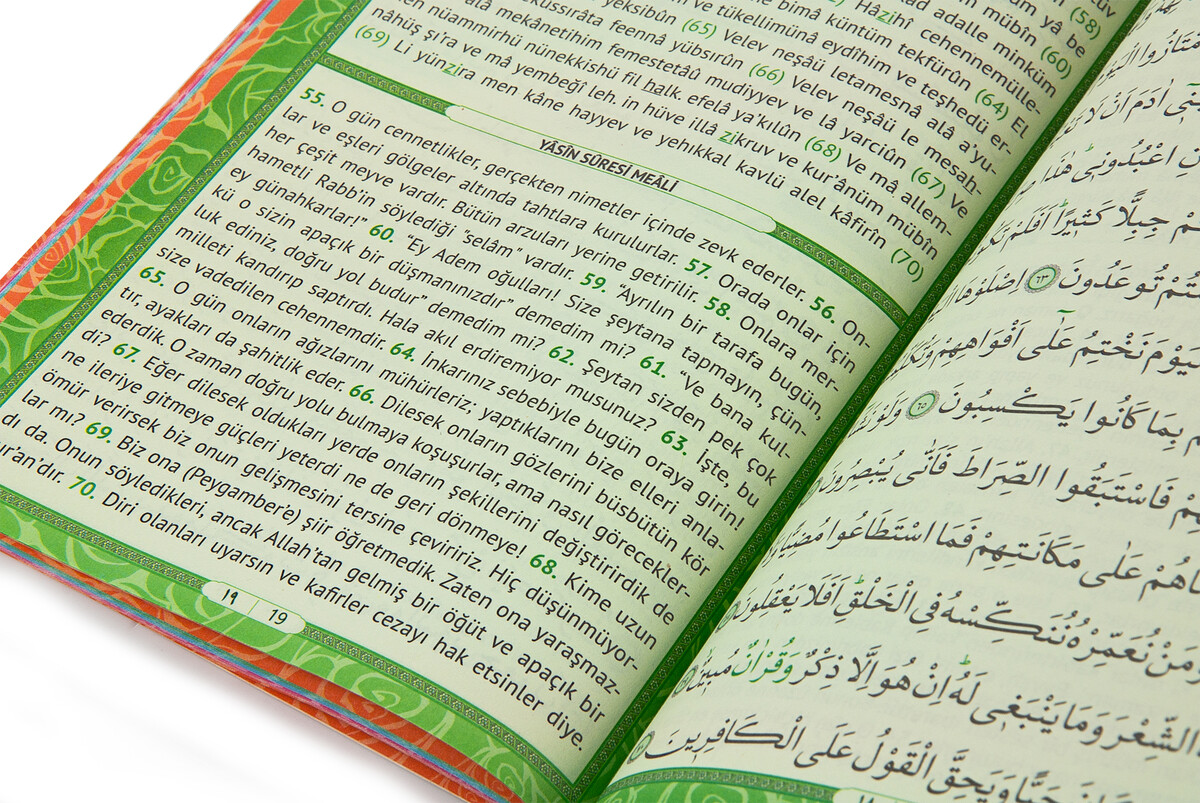 yâ be
mübîn (60)
adalle minküm
Hâzihî cehennemülle-
bimâ küntüm tekfürûn (64) El
ve tükellimünâ eydîhim ve teşhedü er-
yeksibûn (65) Velev neşâü letamesnâ alâ a'yu-
feennâ yübsırûn (66) Velev neşâü le mesah-
alâ mekânetihim femestetâû mudiyyev ve lâ yarciûn (67) Ve
nüammirhü nünekkishü fil halk, efelâ ya'kılûn (68) Ve mâ allem-
nâhüş şi'ra ve mâ yembeğî leh, in hüve illâ zikruv ve kur'ânüm mübîn
(69) Li yünzira men kâne hayyev ve yehıkkal kavlü alel kâfirîn (70)
YÂSÎN SÛRESİ MEÂLİ
55. O gün cennetlikler, gerçekten nimetler içinde zevk ederler. 56. On-
lar ve eşleri gölgeler altında tahtlara kurulurlar. 57. Orada onlar için
her çeşit meyve vardır. Bütün arzuları yerine getirilir. 58. Onlara mer-
hametli Rabb'in söylediği "selâm" vardır. 59. "Ayrılın bir tarafa bugün,
ey günahkarlar!" 60. "Ey Adem oğulları! Size şeytana tapmayın, çün-
kü o sizin apaçık bir düşmanınızdır" demedim mi? 61. "Ve bana kul-
luk ediniz, doğru yol budur" demedim mi? 62. Şeytan sizden pek çok
milleti kandırıp saptırdı. Hala akıl erdiremiyor musunuz? 63. İşte, bu
size vadedilen cehennemdir. 64. İnkarınız sebebiyle bugün oraya girin!
65. O gün onların ağızlarını mühürleriz; yaptıklarını bize elleri anla-
tır, ayakları da şahitlik eder. 66. Dilesek onların gözlerini büsbütün kör
ederdik. O zaman doğru yolu bulmaya koşuşurlar, ama nasıl görecekler-
di? 67. Eğer dilesek oldukları yerde onların şekillerini değiştirirdik de
ne ileriye gitmeye güçleri yeterdi ne de geri dönmeye! 68. Kime uzun
ömür verirsek biz onun gelişmesini tersine çeviririz. Hiç düşünmüyor-
lar mı? 69. Biz ona (Peygamber'e) şiir öğretmedik. Zaten ona yaraşmaz-
dı da. Onun söyledikleri, ancak Allah'tan gelmiş bir öğüt ve apaçık bir
ur'an'dır. 70. Diri olanları uyarsın ve kafirler cezayı hak etsinler diye.
١٩ 19
اٰدَمَ اَنْ لَا
اعْبُدُونِي هٰذَا
جِبِلًّا كَثِيرًا اَفَلَمْ
تُوعَدُونَ ٦٣ اِصْلَوْهَا
نَخْتِمُ عَلٰٓى اَفْوَاهِهِمْ
بِمَا كَانُوا يَكْسِبُونَ ٦٥
فَاسْتَبَقُوا الصِّرَاطَ فَاَنّٰى يُبْصِرُونَ
عَلٰى مَكَانَتِهِمْ فَمَا اسْتَطَاعُوا
وَمَنْ نُعَمِّرْهُ نُنَكِّسْهُ فِي الْخَلْقِ اَفَلَا يَعْقِلُونَ
الشِّعْرَ وَمَا يَنْبَغِي لَهُ اِنْ هُوَ اِلَّا ذِكْرٌ وَقُرْاٰنٌ مُبِينٌ
وَيَحِقَّ الْقَوْلُ عَلَى الْكَافِرِينَ